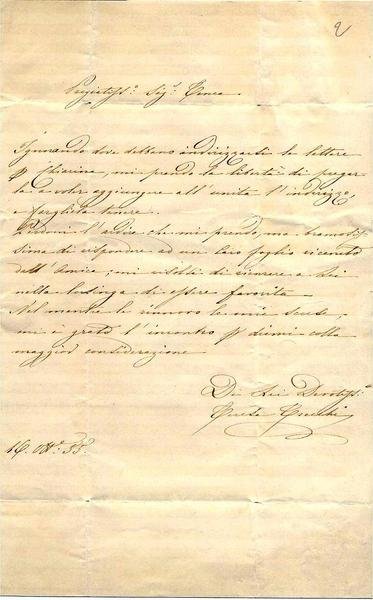 2
Pregiatiss.º Sig.r
Ignorando dove debbano indirizzarsi le lettere
p Chiarina, mi prendo la libertà di pregar-
la a voler aggiungere all'unita l'indirizzo,
e fargliela tenere.
Perdoni l'ardire che mi prendo, ma bramosis-
sima di rispondere ad un caro foglio ricevuto
dall'Amica; mi risolsi di ricorrere a Lei
nella lusinga di essere favorita.
Nel mentre le rinnovo le mie scuse,
mi è grato l'incontro p dirmi colla
maggior considerazione
Di Lei Devotiss.ª
16. Ott.e 55.